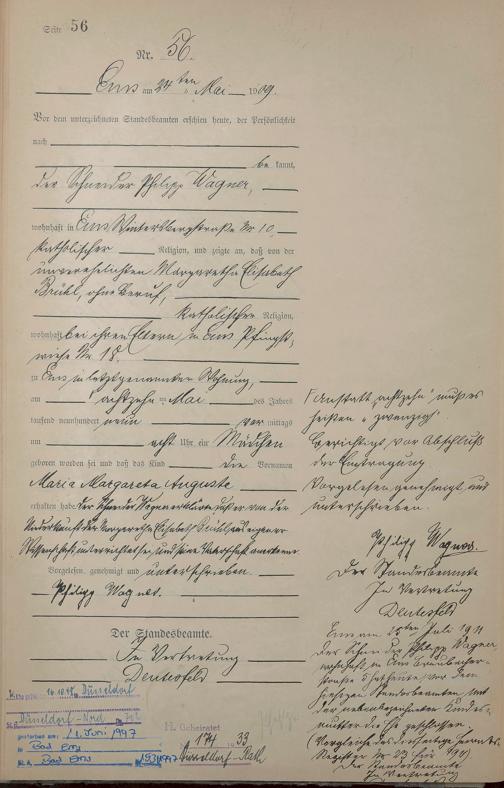 Seite 56
Nr. 56.
Ems am 24ten Mai 1909.
Vor dem unterzeichneten Standesbeamten erschien heute, der Persönlichkeit
nach
be kannt,
der Schneider Philipp Wagner,
wohnhaft in Ems Wintersbergstraße Nr 10,
katholischer Religion, und zeigte an, daß von der
unverehelichten Margaretha Elisabeth
Brühl, ohne Beruf,
katholischer Religion,
wohnhaft bei ihren Eltern in Ems Pfingst,
wiese Nr. 18.
zu Ems in letztgenannter Wohnung,
am achtzehn ten Mai des Jahres
tausend neunhundert neun vor mittags
um acht Uhr ein Mädchen
geboren worden sei und daß das Kind die Vornamen
Maria Margareta Auguste
erhalten habe. Der Schneider Wagner erklärte, daß er von der
Niederkunft der Margaretha Elisabeth Brühl aus eigener
Wissenschaft unterrichtet sei, und seine Vaterschaft anerkenne
Vorgelesen, genehmigt und unterschrieben.
Philipp Wagner.
Der Standesbeamte.
In Vertretung
Deutesfeld
14.10.
Düsseldorf
Düsseldorf-Nord
gestorben am: 1. Juni 1997
in Bad Ems
Bad Ems
H. Geheiratet
174 33
Düsseldorf-Rath
Anstatt "achtzehn" muß es
heißen "zwanzig".
Berichtigt vor Abschluß
der Eintragung
Vorgelesen, genehmigt und
unterschrieben.
Philipp Wagner.
Der Standesbeamte
In Vertretung
Deutesfeld
Ems am ten Juli 1911
Der Schneider Philipp Wagner,
wohnhaft in Ems
straße hat heute, vor dem
hiesigen Standesbeamten mit
der nebenbezeichneten Kindes-
mutter die Ehe geschlossen.
(Vergleiche das diesseitige Heirats-
Register Nr 23 1911)
Der Standesbeamte
In Vertretung